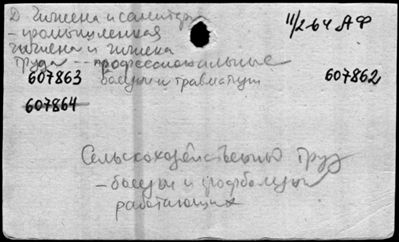 Д Гигиена и санитар
11/2-64 АФ
- промышленная
гигиена и гигиена
труда -- профессиональные
607863 болезни и травматизм 607862
607864
Сельскохозяйственный труд
- болезни и профболезни
работающих